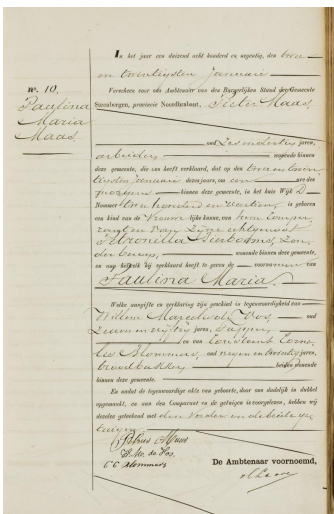 In het jaar een duizend acht honderd en negentig, den twee
en twintigsten januari
N°. 10.
Verscheen voor ons Ambtenaar van den Burgerlijken Stand der Gemeente
Paulina
Maria
Maas
Steenbergen, provincie Noordbrabant, Pieter Maas,
oud zes en dertig jaren,
arbeider wonende binnen
deze gemeente, die ons heeft verklaard, dat op den twee en twin
tigsten januari dezes jaars, om een ure des
binnen deze gemeente, in het huis Wijk D
Nommer twee honderd en veertien, is geboren
een kind van de Vrouwelijke kunne, van hem Compa
rant en van zijne echtgenoot
Petronella zon
der beroep, wonende binnen deze gemeente,
en nog heeft hij verklaard heeft te geven de voornamen van
Paulina Maria.
Welke aangifte en verklaring zijn geschied in tegenwoordigheid van
Willem Marcelis de Vos, oud
zeven en vijftig jaren,
en van Constant Corne
lis Blommers, oud negen en twintig jaren,
broodbakker, beiden wonende
binnen deze gemeente.
En nadat de tegenwoordige akte van geboorte, door ons dadelijk in dubbel
opgemaakt, en aan den Comparant en de getuigen is voorgelezen, hebben wij
dezelve geteekend met den Vader en de beide ge
tuigen
Maas
W. M. de Vos.
C C Blommers
De Ambtenaar voornoemd,